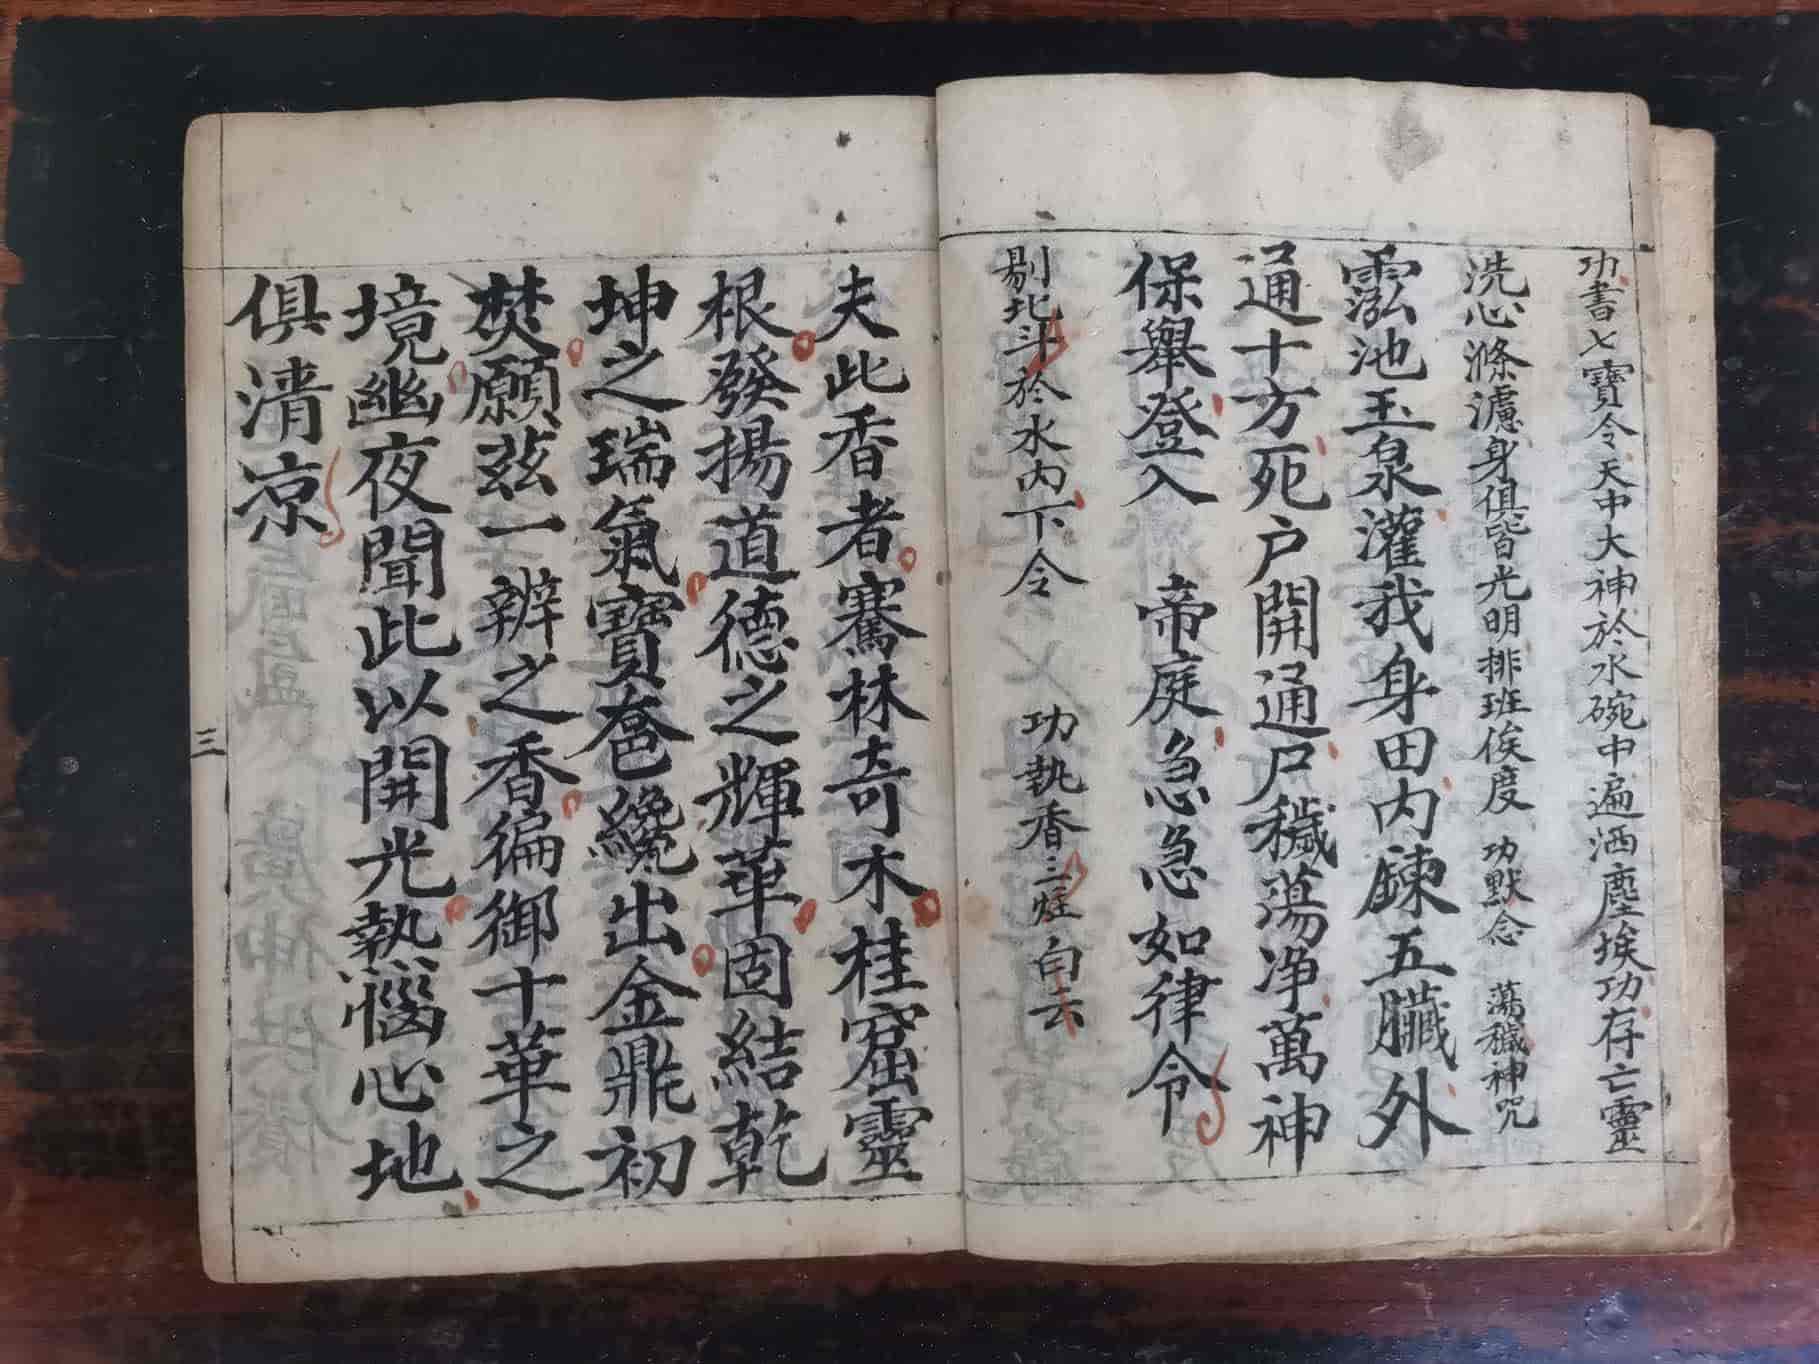 功書七寶令天中大神於水碗中遍洒塵埃功存亡靈
洗心滌濾身俱皆光明排班俟度 功默念 蕩穢神咒
泓池玉泉灌我身田内鍊五臟外
通十方死户開通尸穢蕩净萬神
保舉登入 帝庭急急如律令
剔北斗於水内下令 功執香三炷白云
夫此香者騫林奇木桂窟靈
根發揚道德之輝華固結乾
坤之瑞氣寶奩纔出金鼎初
焚願兹一辦之香徧御十華之
境幽夜聞此以開光熱惱心地
俱清凉
三